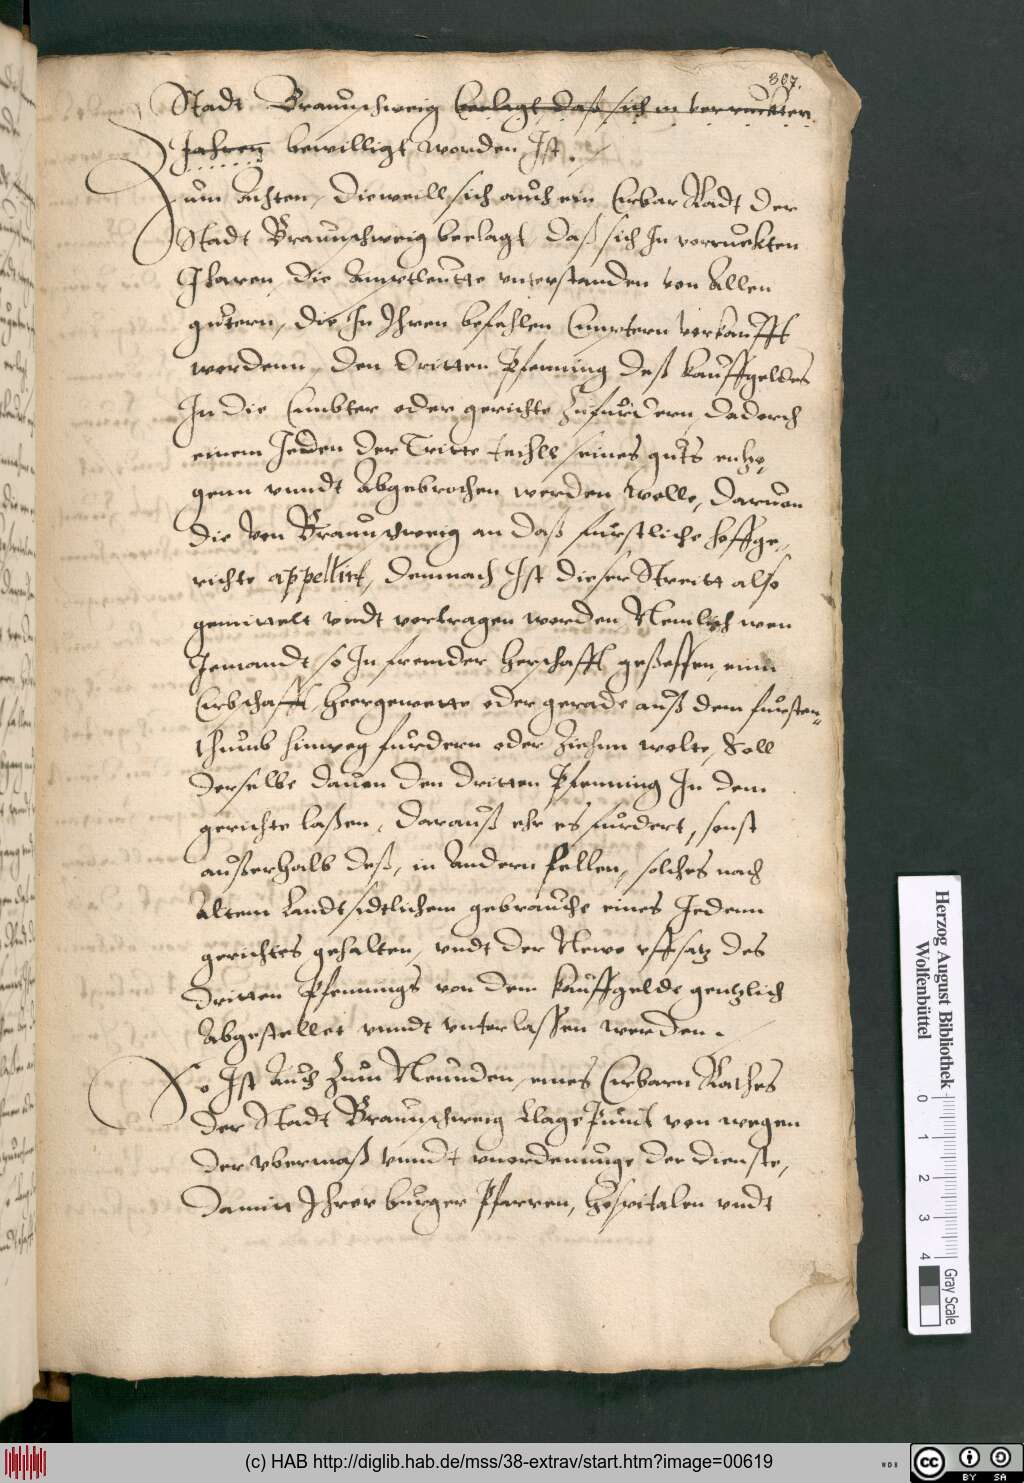 307.
Stadt Braunschweig beclagt, daß sich in verruckten
Jahren bewilligt worden Ist.
Zum Achten, Dieweill sich auch ein Erbar Radt der
Stadt Braunschweig beclagt, daß sich In vorruckten
Jharen die Amptleutte vnterstanden von Allen
gutern, die In Ihren befohlen Emptern verkaufft
werdenn, den dritten Pfenning deß kauffgeldes
In die Embter oder gerichte Zufurdern, dadorch
einem Jeden der Dritte teihll seines guts entzo,
genn vnndt Abgebrochen werden wolle, daruon
die von Braunschweig an daß furstliche hoffge,
richte appellirt, demnach Ist dieser Streitt also
gemittelt vndt vortragen worden Nemlich wen
Jemandt so In fremder herschafft geßessen, einn
Erbschafft, heergewette oder gerade auß dem fursten,,
thumb hinweg furdern oder Ziehnn wolte, Soll
derselbe dauon den dritten Pfenning In dem
gerichte laßen, darauß ehr es furdert, sonst
außerhalb deß, in Andern fellen, solches nach
Altem Landtsidtlichem gebrauche eines Jedenn
gerichtes gehalten, vndt der Newe vffsatz des
dritten Pfennings von dem kauffgelde gentzlich
Abgestellet vnndt vnterlassen werden.
So Ist Auch Zum Neunden, eines Erbarn Rathes
der Stadt Braunschweig Clage Punct von wegen
der vbermaß vnndt vnordenunge der dienste,
damitt Ihrer burger Pfarren, hospitalen vndt
Herzog August Bibliothek
Wolfenbüttel
0 1 2 3 4
Gray Scale
(c) HAB http://diglib.hab.de/mss/38-extrav/start.htm?image=00619
WDB
cc BY SA